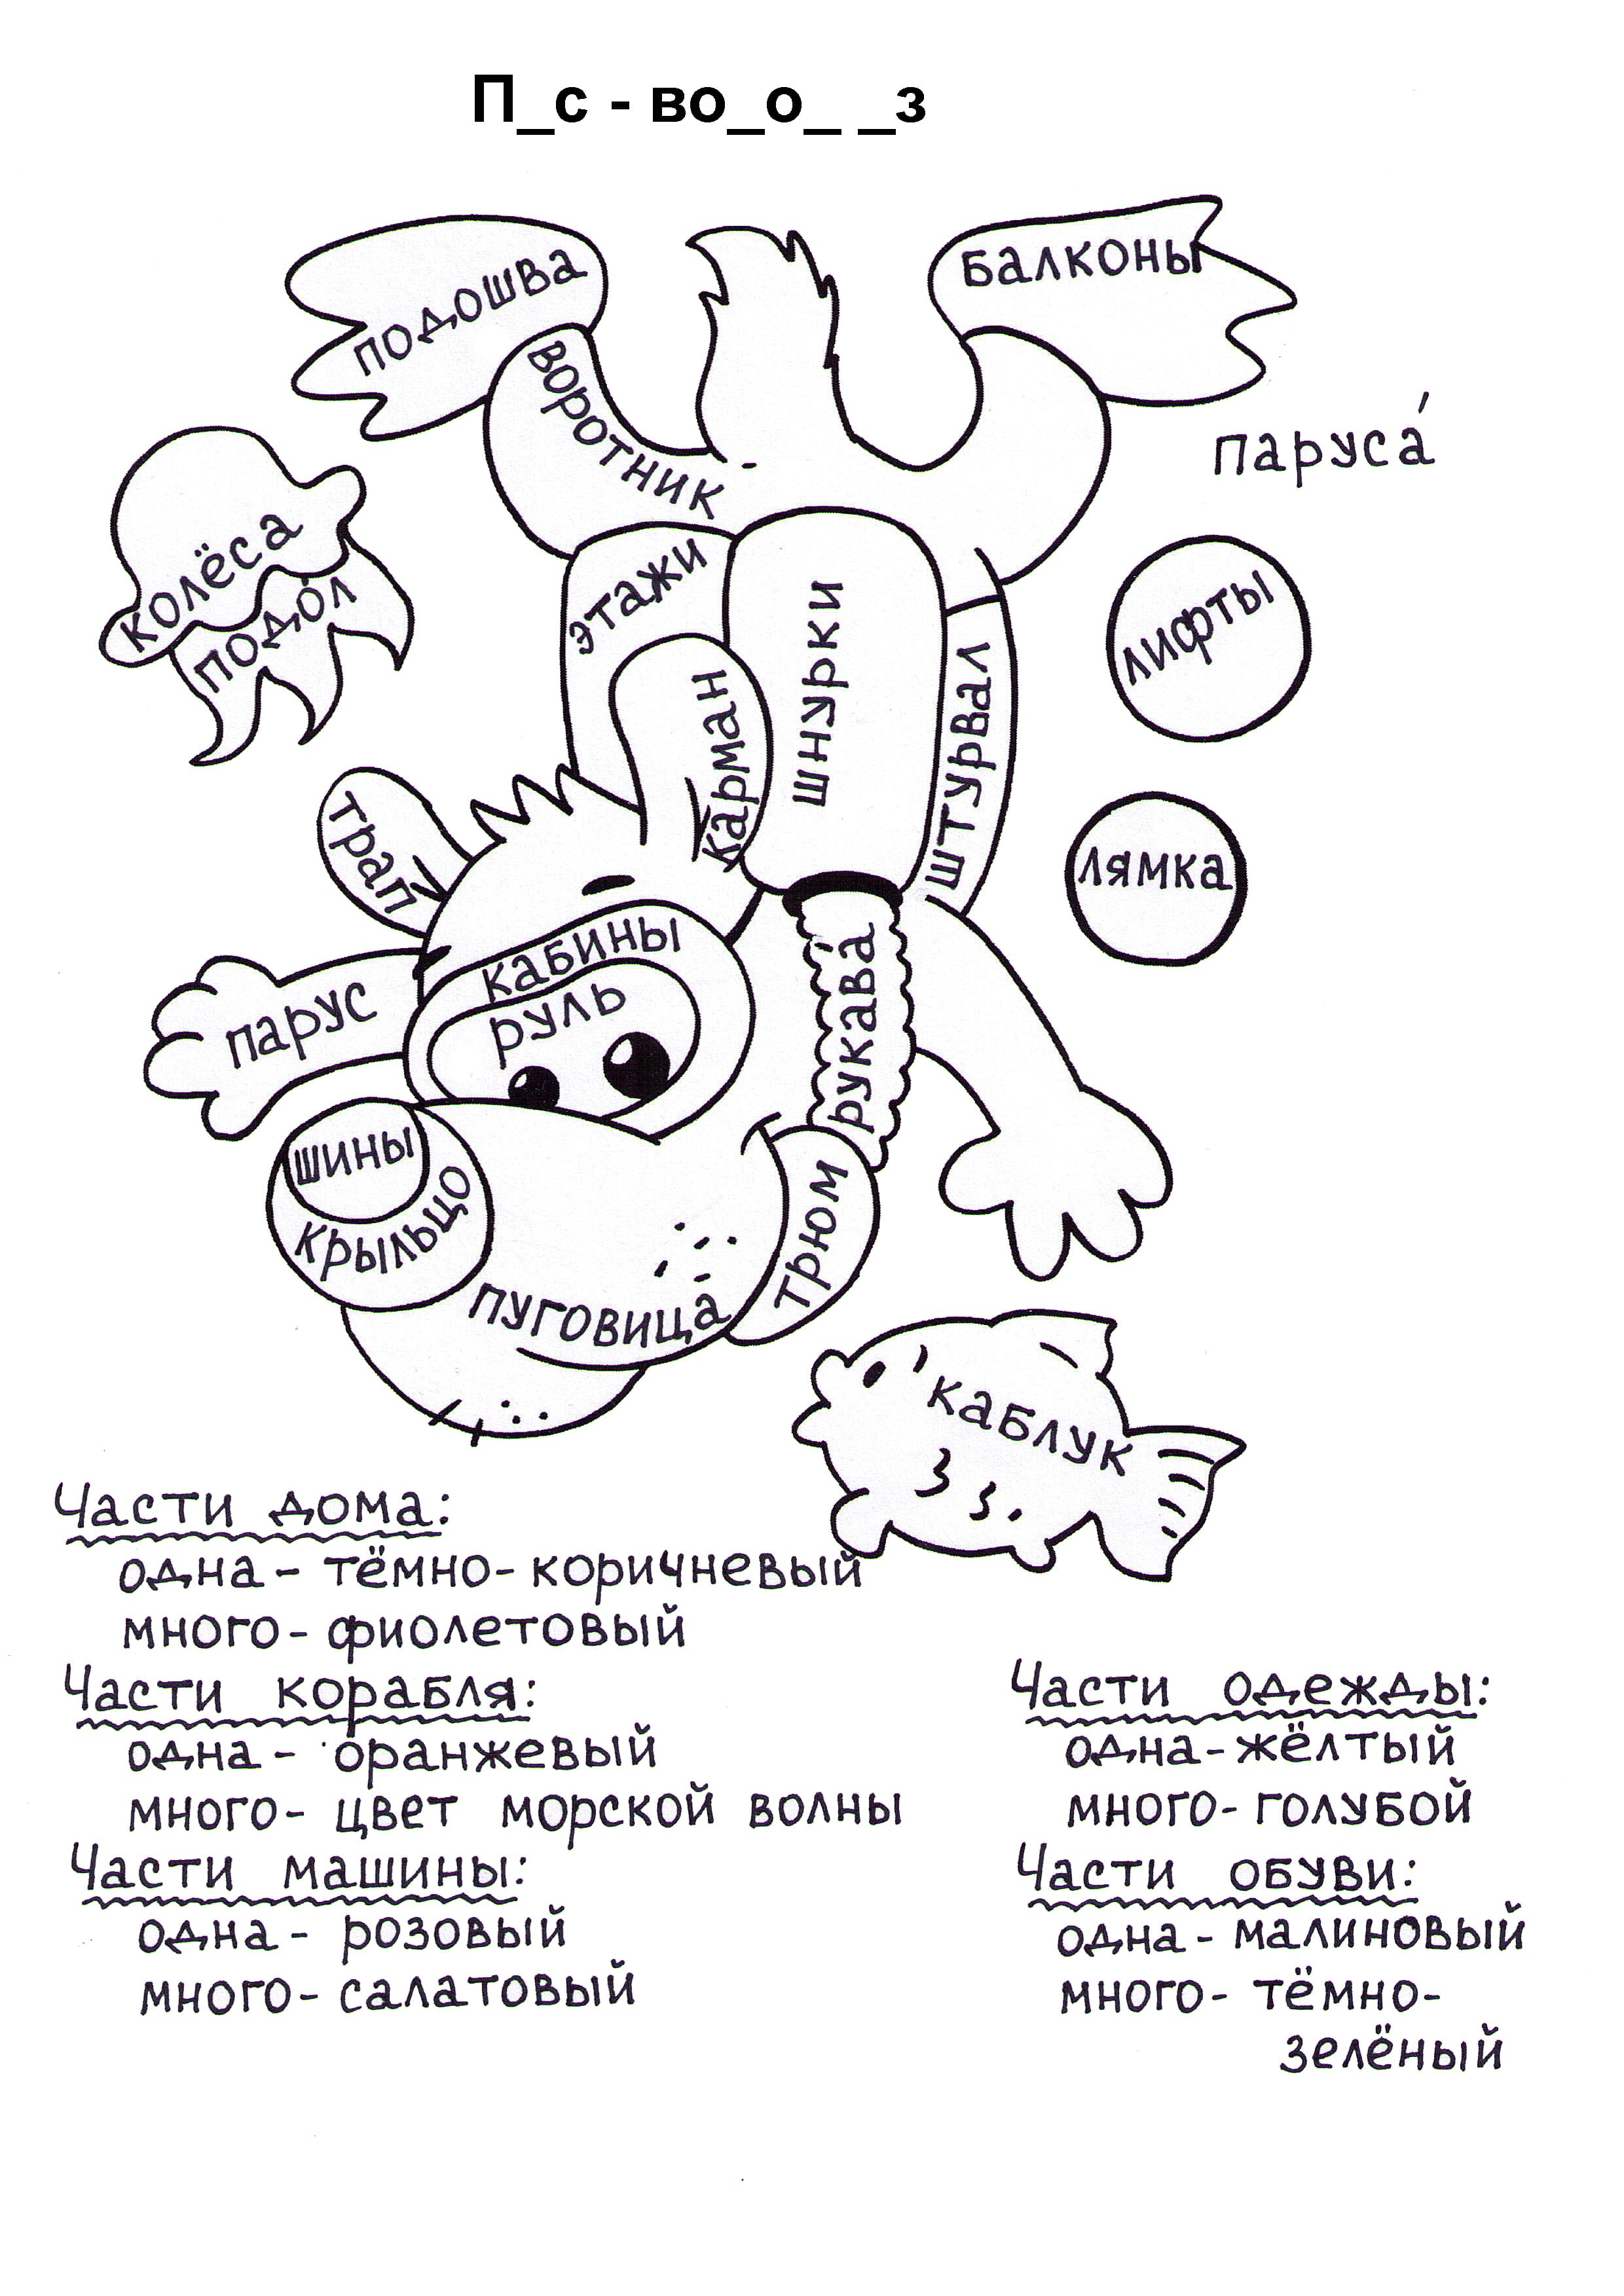 П_с - во_о_ _з
подошва
балконы
воротник
паруса́
колёса
подол
этажи
шнурки
лифты
карман
штурвал
трап
лямка
кабины
руль
рукава́
парус
шины
крыльцо
трюм
пуговица
каблук
Части дома:
одна - тёмно-коричневый
много - фиолетовый
Части корабля:
одна - оранжевый
много - цвет морской волны
Части машины:
одна - розовый
много - салатовый
Части одежды:
одна - жёлтый
много - голубой
Части обуви:
одна - малиновый
много - тёмно-
зелёный